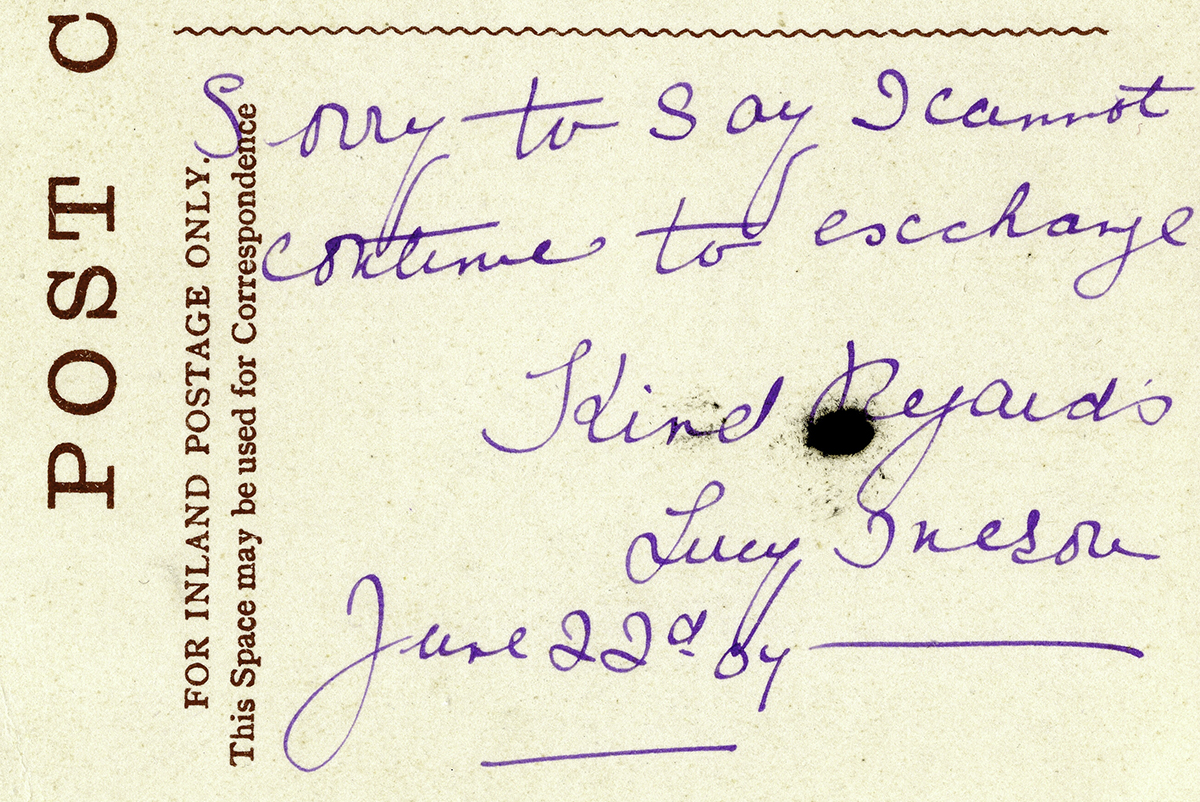 POST C
FOR INLAND POSTAGE ONLY.
This Space may be used for Correspondence
Sorry to say I cannot
continue to exchange
Kind Regards
Lucy Ineson
June 22d 04